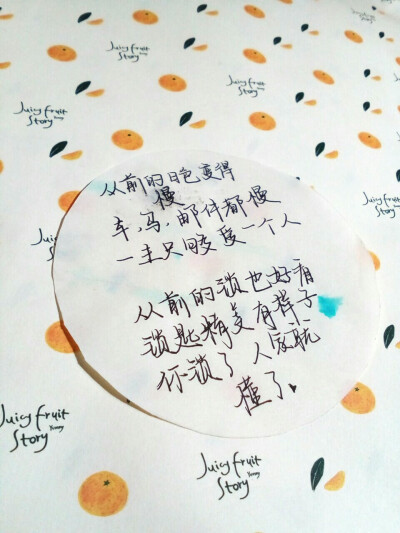 Juicy fruit
Story
Juicy fruit
Story
Juicy fruit
Story
Juicy fruit
Story
从前的日色变得
慢
车,马,邮件都慢
一生只够爱一个人
从前的锁也好看
锁匙精美有样子
你锁了 人家就
懂了
Juicy fruit
Story
Juicy fruit
Story
Juicy fruit
Story